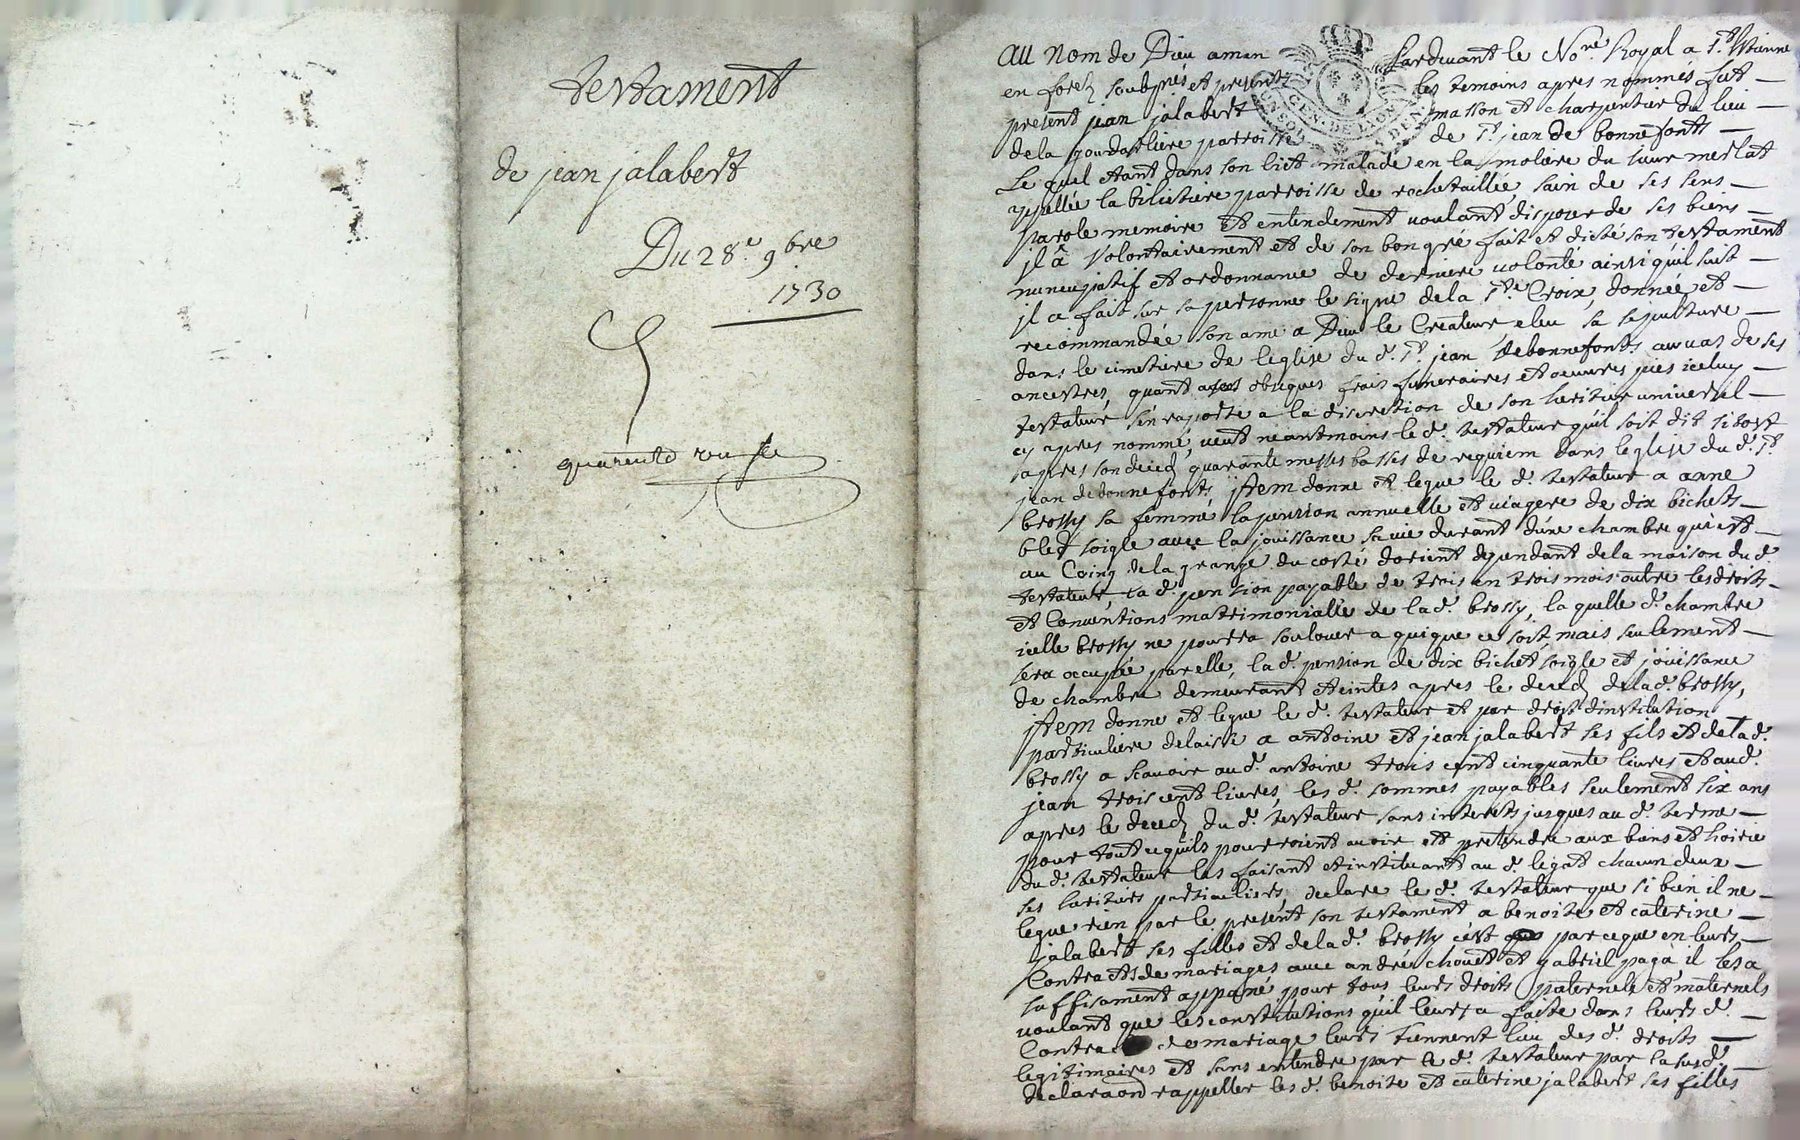 testament
de jean jalabert
Du 28.e 9bre
1730
quarente
au nom de Dieu amen Pardevant le No.re Royal a St. Etienne
en forez soubsnés et presents les temoins apres nommés fut
present jean jalabert masson et charpentier du lieu
de la parroisse de St. jean de bonnefonts
Le quel etant dans son lict malade en la moliere du sieur merlat
appellée la parroisse de rochetaillée, sain de ses sens
parole memoire et entendement voulant disposer de ses biens
il a volontairement et de son bon gré fait et dicté son testament
nuncupatif et ordonnance de derniere volonté ainsi qu'il suit
il a fait sur sa personne le signe de la Ste. Croix, donnée et
recommandée son ame a Dieu le Createur eleu sa sepulture
dans le cimetiere de leglise du d. St. jean debonnefonts au vas de ses
ancestres, quant a obseques frais funeraires et oeuvres pies iceluy
testateur s'en raporte a la discretion de son heritier universel
cy apres nommé, veut neantmoins le d. testateur qu'il soit dit sitost
apres son deced quarante messes basses de requiem dans leglise du d. St.
jean debonnefonts, jtem donne et legue le d. testateur a anne
brossy sa femme la pension annuelle et viagere de dix bichets
bled soigle avec la jouissance sa vie durant d'une chambre qui est
au Coing de la grange du costé dorient dependant de la maison du d.
testateur, la d. pension payable de trois en trois mois outre les droits
et Conventions matrimonialle de la d. brossy, la quelle d. chambre
icelle brossy ne pourra soulouer a qui que ce soit mais seulement
sera occupée par elle, la d. pension de dix bichet soigle et jouissance
de chambre demeurant eteintes apres le deced de la d. brossy,
jtem donne et legue le d. testateur et par droit dinstitution
particuliere delaisse a antoine et jean jalabert ses fils et de la d.
brossy a scavoir au d. antoine trois cent cinquante livres et au d.
jean trois cent livres, les d. sommes payables seulement six ans
apres le deced du d. testateur sans interests jusques au d. terme
pour tout ce quils pourroient avoir et pretendre aux biens et hoirie
du d. testateur les faisant et instituant au d. legat chacun deux
ses heritiers particuliers, declare le d. testateur que si bien il ne
legue rien par le present son testament a benoite et caterine
jalabert ses filles et de la d. brossy c'est par ce que en leurs
Contracts de mariages avec andré chouet et gabriel paga il les a
suffisament appané pour tous leurs droits paternels et maternels
voulant que les constitutions qu'il leurs a faite dans leurs d.
Contra de mariage leurs tiennent lieu des d. droits
legitimaires et sans entendre par le d. testateur par la susd.
declaraon rappeller les d. benoite et caterine jalabert ses filles
GEN. DE LION